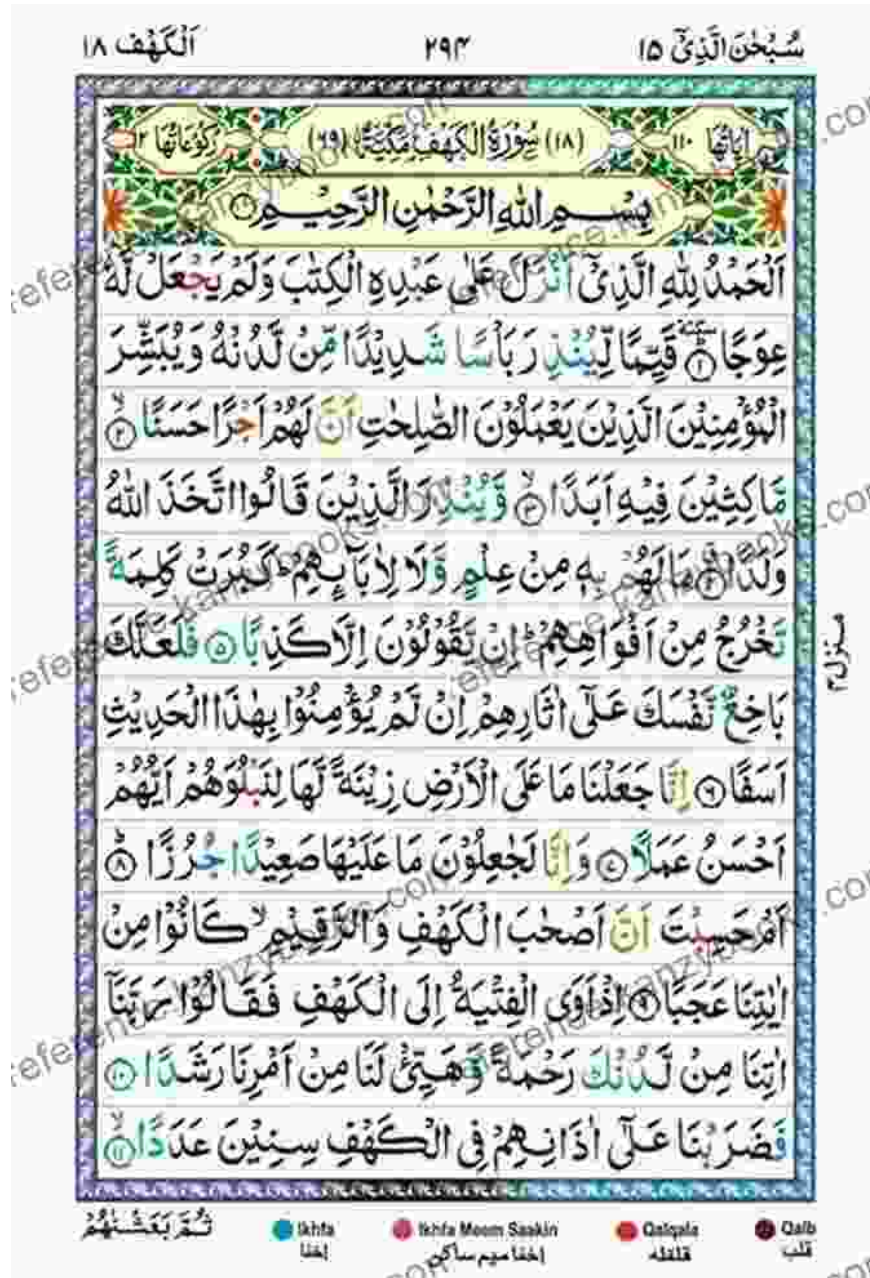 سُبْحٰنَ الَّذِیْۤ ۱۵ ۲۹۴ اَلْكَهْف ۱۸
اٰیَاتُهَا ۱۱۰ (۱۸) سُوْرَةُ الْكَهْفِ مَكِّیَّةٌ (۶۹) رُكُوْعَاتُهَا ۱۲
بِسْمِ اللّٰهِ الرَّحْمٰنِ الرَّحِیْمِ
اَلْحَمْدُ لِلّٰهِ الَّذِیْۤ اَنْزَلَ عَلٰى عَبْدِهِ الْكِتٰبَ وَلَمْ یَجْعَلْ لَّهٗ
عِوَجًا ۱ قَیِّمًا لِّیُنْذِرَ بَاْسًا شَدِیْدًا مِّنْ لَّدُنْهُ وَیُبَشِّرَ
الْمُؤْمِنِیْنَ الَّذِیْنَ یَعْمَلُوْنَ الصّٰلِحٰتِ اَنَّ لَهُمْ اَجْرًا حَسَنًا ۲
مَّاكِثِیْنَ فِیْهِ اَبَدًا ۳ وَّیُنْذِرَ الَّذِیْنَ قَالُوا اتَّخَذَ اللّٰهُ
وَلَدًا ۴ مَا لَهُمْ بِهٖ مِنْ عِلْمٍ وَّلَا لِاٰبَآىِٕهِمْ ؕ كَبُرَتْ كَلِمَةً
تَخْرُجُ مِنْ اَفْوَاهِهِمْ ؕ اِنْ یَّقُوْلُوْنَ اِلَّا كَذِبًا ۵ فَلَعَلَّكَ
بَاخِعٌ نَّفْسَكَ عَلٰۤى اٰثَارِهِمْ اِنْ لَّمْ یُؤْمِنُوْا بِهٰذَا الْحَدِیْثِ
اَسَفًا ۶ اِنَّا جَعَلْنَا مَا عَلَى الْاَرْضِ زِیْنَةً لَّهَا لِنَبْلُوَهُمْ اَیُّهُمْ
اَحْسَنُ عَمَلًا ۷ وَاِنَّا لَجٰعِلُوْنَ مَا عَلَیْهَا صَعِیْدًا جُرُزًا ۸
اَمْ حَسِبْتَ اَنَّ اَصْحٰبَ الْكَهْفِ وَالرَّقِیْمِ ۙ كَانُوْا مِنْ
اٰیٰتِنَا عَجَبًا ۹ اِذْ اَوَى الْفِتْیَةُ اِلَى الْكَهْفِ فَقَالُوْا رَبَّنَاۤ
اٰتِنَا مِنْ لَّدُنْكَ رَحْمَةً وَّهَیِّئْ لَنَا مِنْ اَمْرِنَا رَشَدًا ۱۰
فَضَرَبْنَا عَلٰۤى اٰذَانِهِمْ فِی الْكَهْفِ سِنِیْنَ عَدَدًا ۱۱
منزل ۴
ثُمَّ بَعَثْنٰهُمْ
Ikhfa Ikhfa Meem Saakin Qalqala Qalb
اخفا اخفا میم ساکن قلقله قلب
reference.kanzybooks.com